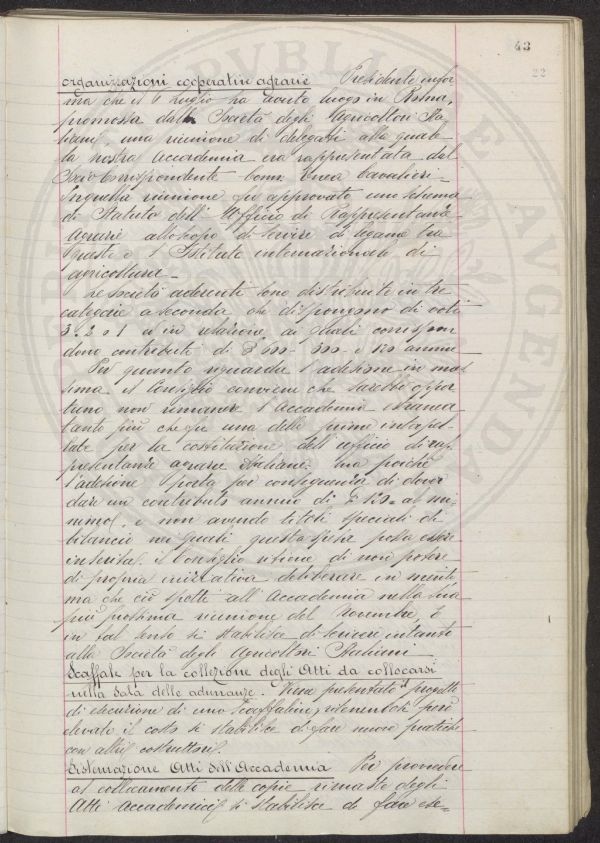 43
22
organizzazioni cooperative agrarie Presidente infor
ma che il 6 Luglio ha avuto luogo in Roma,
promossa dalla Società degli Agricoltori Ita
liani, una riunione di delegati alla quale
la nostra Accademia era rappresentata dal
Socio Corrispondente Comm. Enea Cavalieri.
In quella riunione fu approvato uno schema
di Statuto dell' Ufficio di Rappresentanze
Agrarie allo scopo di servire di legame tra
queste e l'Istituto internazionale di
agricoltura.
Le società aderenti sono distribuite in tre
categorie a seconda che dispongono di voti
3. 2 o 1 e in relazione ai quali corrispon
dono contributi di annui
Per quanto riguarda l'adesione in mas
sima il Consiglio conviene che sarebbe oppor
tuno non rimanere l'Accademia estranea
tanto più che fu una delle prime interpel
late per la costituzione dell' ufficio di rap
presentanze agrarie Italiane. Ma poichè
l'adesione porta per conseguenza di dover
dare un contributo annuo di al mi
nimo, e non avendo titoli speciali di
bilancio nei quali questa spesa possa essere
inserita, il Consiglio ritiene di non potere
di propria iniziativa deliberare in merito,
ma che ciò spetti all'Accademia nella sua
più prossima riunione del Novembre, e
in tal senso si stabilisce di scrivere intanto
alla Società degli Agricoltori Italiani
Scaffale per la collezione degli Atti da collocarsi
nella sala delle adunanze. Viene presentato il progetto
di esecuzione di uno Scaffalino; ritenendosi però
elevato il costo si stabilisce di fare nuove pratiche
con altri costruttori.
Sistemazione Atti dell'Accademia Per provvedere
al collocamento delle copie rimaste degli
Atti Accademici si stabilisce di fare ese=